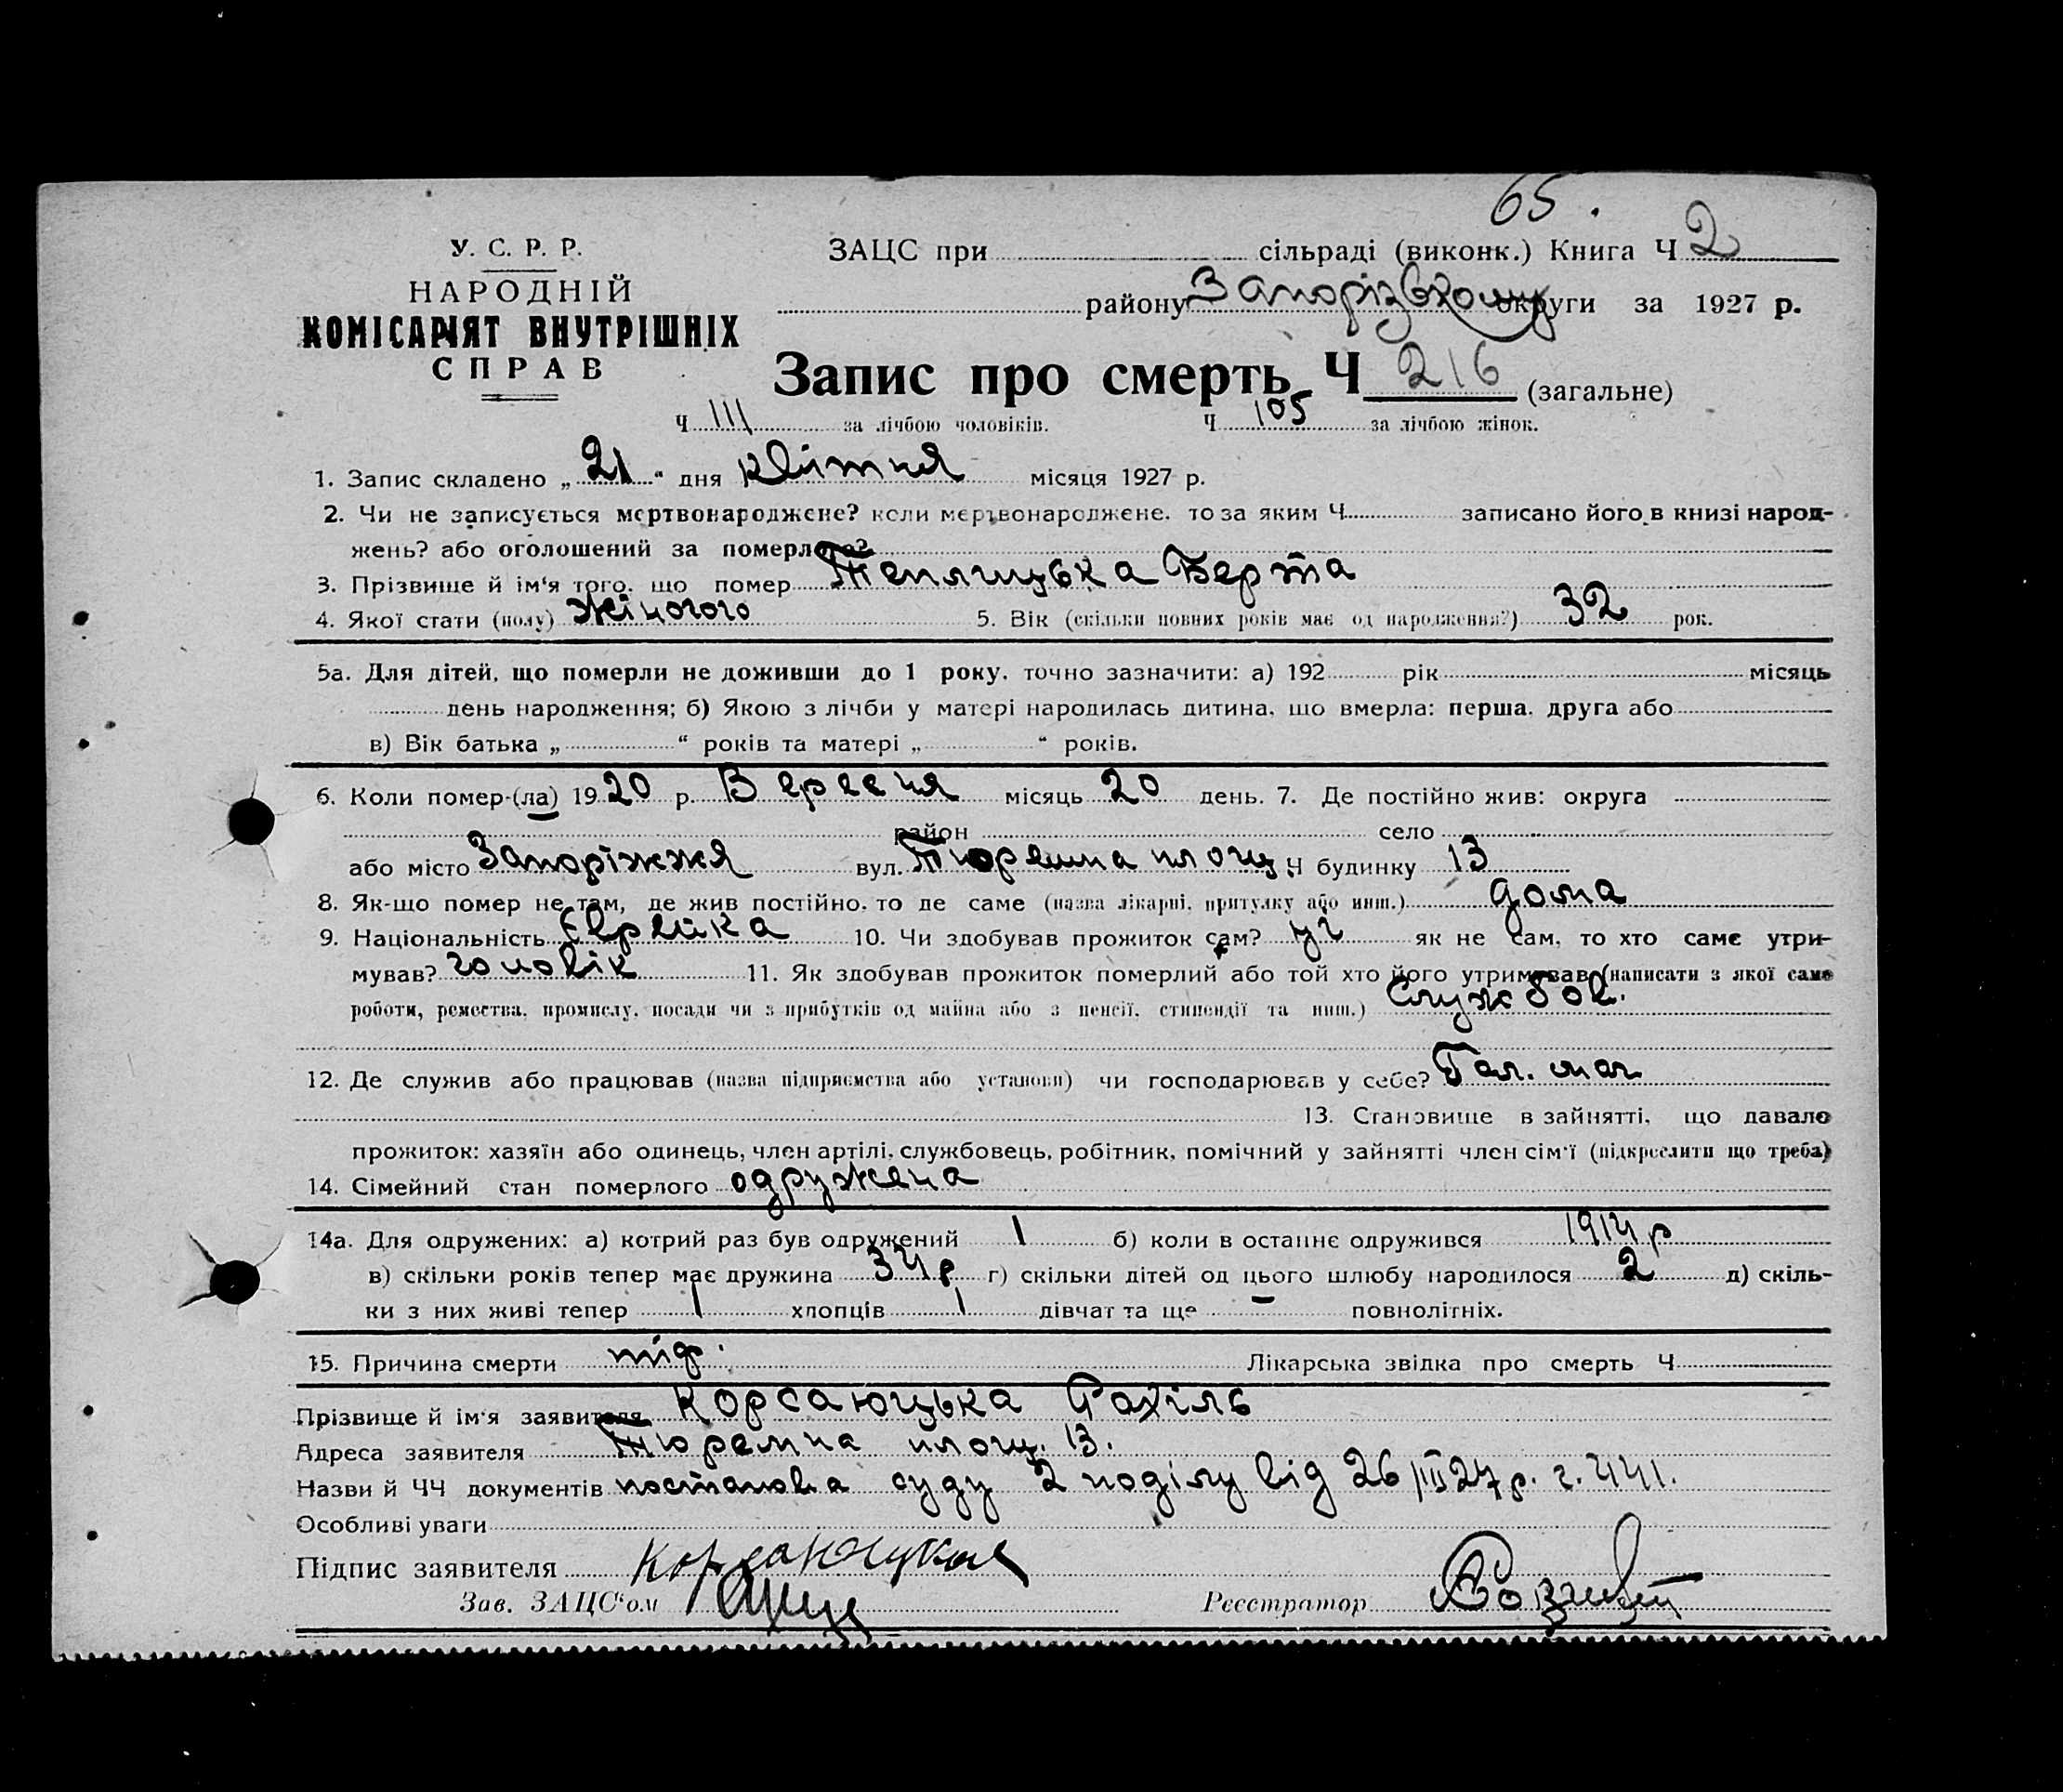 65.
У. С. Р. Р.
НАРОДНІЙ
КОМІСАРІЯТ ВНУТРІШНІХ
СПРАВ
ЗАЦС при сільраді (виконк.) Книга Ч 2
району Запорізькому округи за 1927 р.
Запис про смерть Ч 216 (загальне)
Ч 111 за лічбою чоловіків. Ч 105 за лічбою жінок.
1. Запис складено „ 21 “ дня квітня місяця 1927 р.
2. Чи не записується мертвонароджене? коли мертвонароджене, то за яким Ч записано його в книзі народ-
жень? або оголошений за померлого?
3. Прізвище й ім'я того, що помер Теплицька Берта
4. Якої стати (полу) жіночого 5. Вік (скільки повних років має од народження?) 32 рок.
5а. Для дітей, що померли не доживши до 1 року, точно зазначити: а) 192 рік місяць
день народження; б) Якою з лічби у матері народилась дитина, що вмерла: перша, друга або
в) Вік батька „ “ років та матері „ “ років.
6. Коли помер-(ла) 1920 р. Вересня місяць 20 день. 7. Де постійно жив: округа
район село
або місто Запоріжжя вул. Тюремна площ Ч будинку 13
8. Як-що помер не там, де жив постійно, то де саме (назва лікарні, притулку або инш.) дома
9. Національність Єврейка 10. Чи здобував прожиток сам? ні як не сам, то хто саме утри-
мував? чоловік 11. Як здобував прожиток померлий або той хто його утримував (написати з якої саме
роботи, ремества, промислу, посади чи з прибутків од майна або з пенсії, стипендії та инш.) Службов.
12. Де служив або працював (назва підприємства або установи) чи господарював у себе? Гал. маг
13. Становище в зайнятті, що давало
прожиток: хазяїн або одинець, член артілі, службовець, робітник, помічний у зайнятті член сім'ї (підкреслити що треба)
14. Сімейний стан померлого одружена
14а. Для одружених: а) котрий раз був одружений 1 б) коли в останнє одружився 1914 р
в) скільки років тепер має дружина 34 р г) скільки дітей од цього шлюбу народилося 2 д) скіль-
ки з них живі тепер 1 хлопців 1 дівчат та ще – повнолітніх.
15. Причина смерти тіф. Лікарська звідка про смерть Ч
Прізвище й ім'я заявителя Корсаюцька Рахіль
Адреса заявителя Тюремна площ. 13.
Назви й ЧЧ документів постанова суду 2 поділу від 26/III 27 р. г. 441.
Особливі уваги
Підпис заявителя
Зав. ЗАЦС'ом Реєстратор